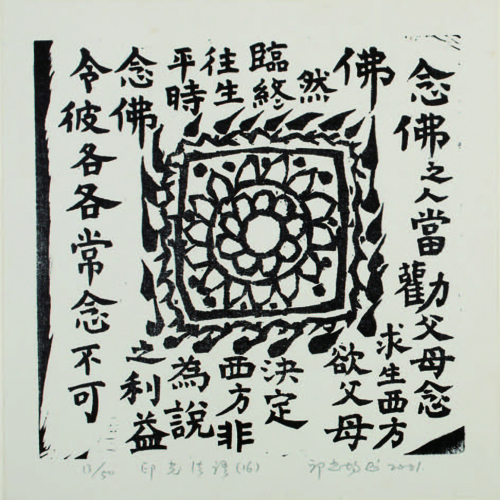 念佛之人當勸父母念
佛
求生西方
然
欲父母
臨終
決定
往生
西方非
平時
為說
念佛
之利益
令彼各各常念不可
印光法語(16)
2001.